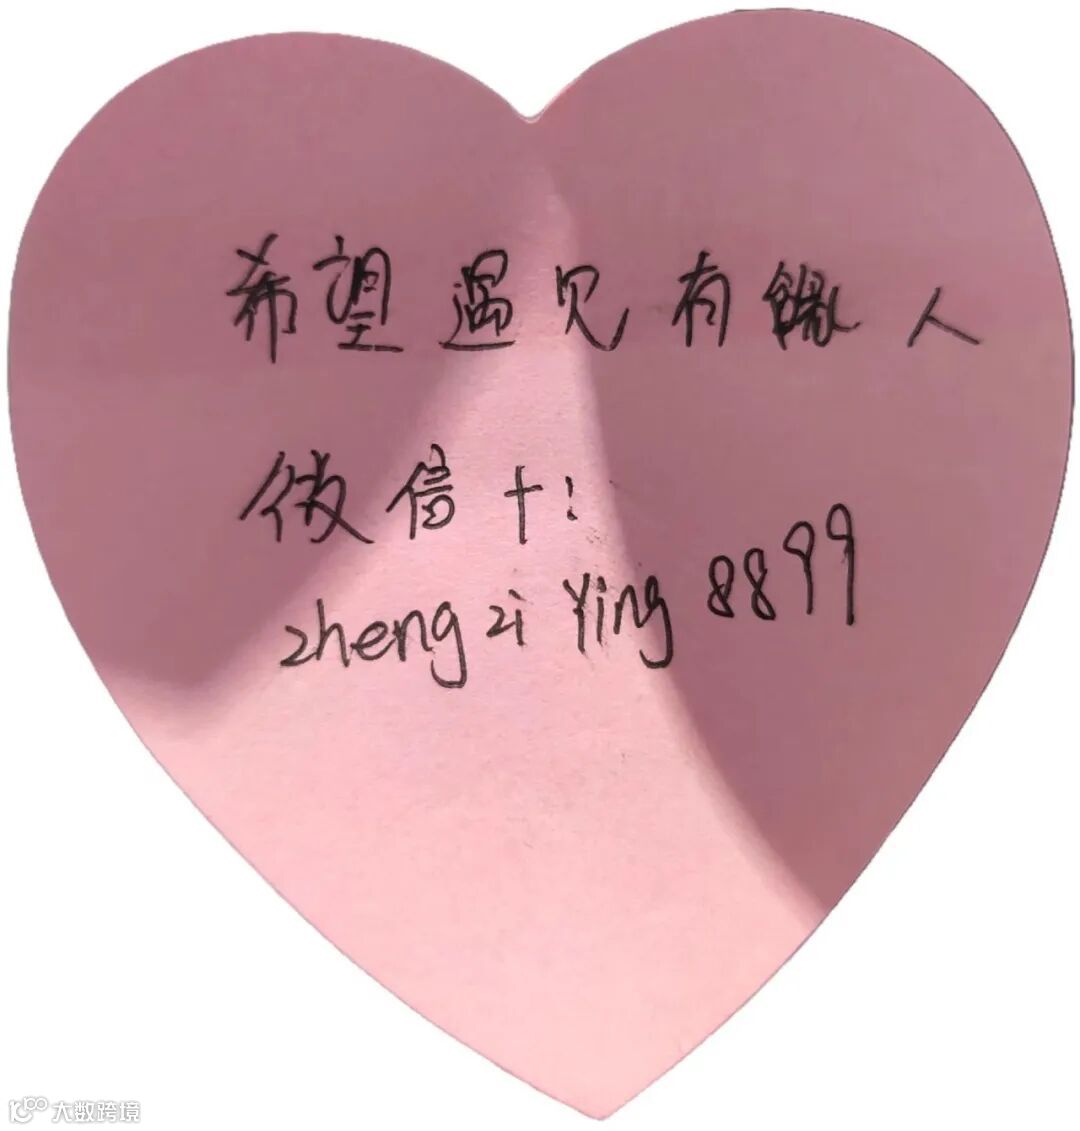 希望遇见有缘人
微信十:
zheng zi Ying 8899
大数跨境